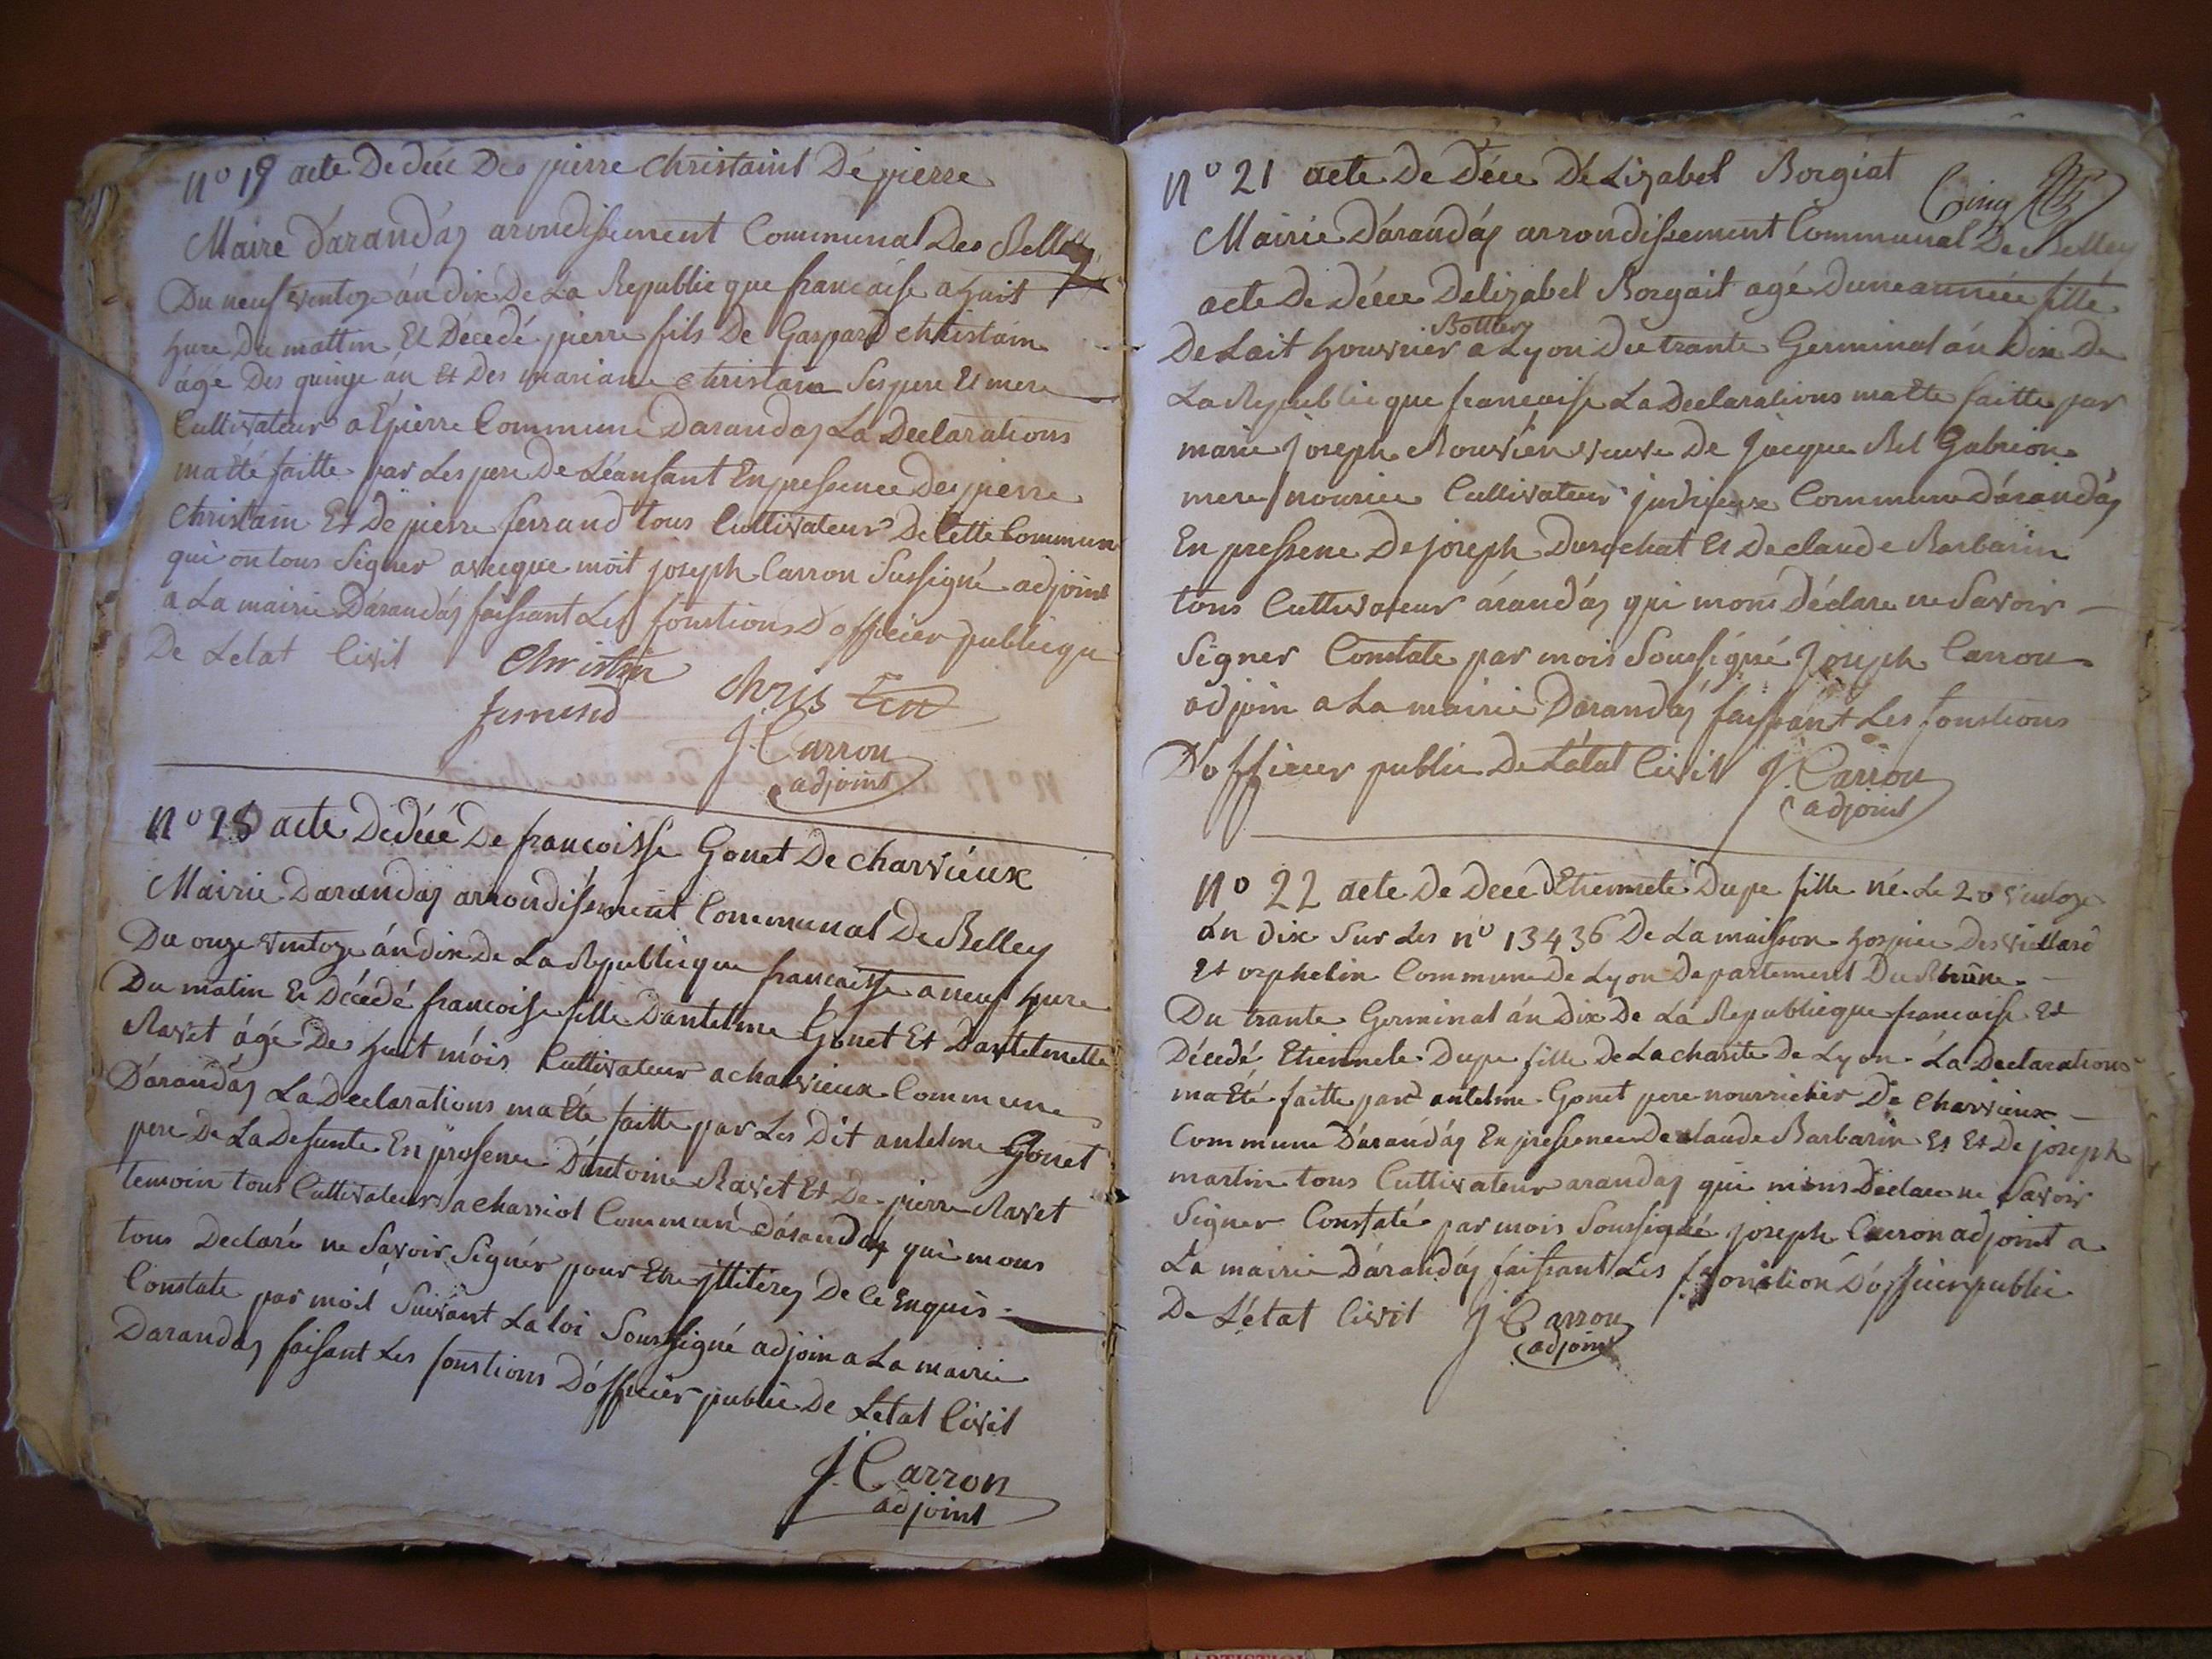 n° 19 acte De déce Des pierre christaint Dé pierre
Maire d'arandás arondissement Communal Des Belley
Du neuf ventoze án dix De La Republicque francaise a huit
hure Du mattin Et Décedé pierre fils De Gaspard christain
ágé Des quinze án Et Des mariane christain Ses pere Et mere
Cultivateur a Epierre Commune Darandas La Declarations
mατté faitte par Les pere De Léanfant En pressence De pierre
christain Et De pierre ferrand tous Cultivateur De Cette Commun
qui on tous Signer avecque moit joseph Carron Sussigné adjoint
a La mairie Darandás faissant Les fonstions D officier publicque
De Letat Civil
Christin
chris tin
ferrend
J. Carron
adjoint
n° 20 acte De déce De francoisse Gonet De charvieux
Mairie Darandas arrondissement Communal De Belley
Du onze ventoze án dix De La Republicque francaisse a neuf hure
Du matin Et Décédé francoise fille Dantelme Gonet Et Dantelmette
Ravet ágé De huit mois Cultivateur a charvieux Commune
D'arandás La Declarations ma Eté faitte par Les Dit antelme Gonet
pere De La Defunte En presence Dantoine Ravet Et De pierre Ravet
temoin tous Cultivateur a charviol Commun dárandas qui mons
tous Declaré ne Savoir Signér pour Etre jttiterez De Ce Enquis
Constate par moit Suivant La loi Soussigné adjoin a La mairie
Darandas faisant Les fonstions D'officier public De Létat Civil
J. Carron
adjoint
Cinq
n° 21 acte De Déce Dé Lizabel Borgiat
Mairie D'arandás arrondissement Communal De Belley
acte De décee De lizabel Borgait agé Dune année fille
De Lait Bottier
houvrier a Lyon Du trante Germinal án Dix De
La Republicque francaise La Declarations ma Ete faitte par
marie joseph Bouvién veuve De jacque Rel Gabrion
mere nourice Cultivateur judrieux Commune d'árandás
En pressene De joseph Durochat Et De claude Barbarin
tous Cultivateur árandás qui mons Déclare ne Savoir
Signer Constate par mois Soussigné joseph Carron
adjoin a La mairie Darandás faissant Les fonstions
D'officier public De Létat Civil
J. Carron
adjoint
n° 22 acte De Déce d'Etiennete Dupe fille né Le 20 ventoze
án dix Sur Les n° 13436 De La maisson hospice Des viellard
Et orphelin Commune De Lyon Departement Du Rhône
Du trante Germinal án Dix De La Republicque francaise Et
Décedé Etiennete Dupe fille De La charite De Lyon La Declarations
ma Eté faitte par antelme Gonet pere nourricier De charvieux
Commune Dárandás En pressence De claude Barbarin Et Et De joseph
martin tous Cultivateur arandas qui mons Declare ne Savoir
Signer Constaté par mois Soussigné joseph Carron adjoint a
La mairie D'árandás faissant Les fonstion D'officier public
De L'état Civil
J. Carron
adjoint